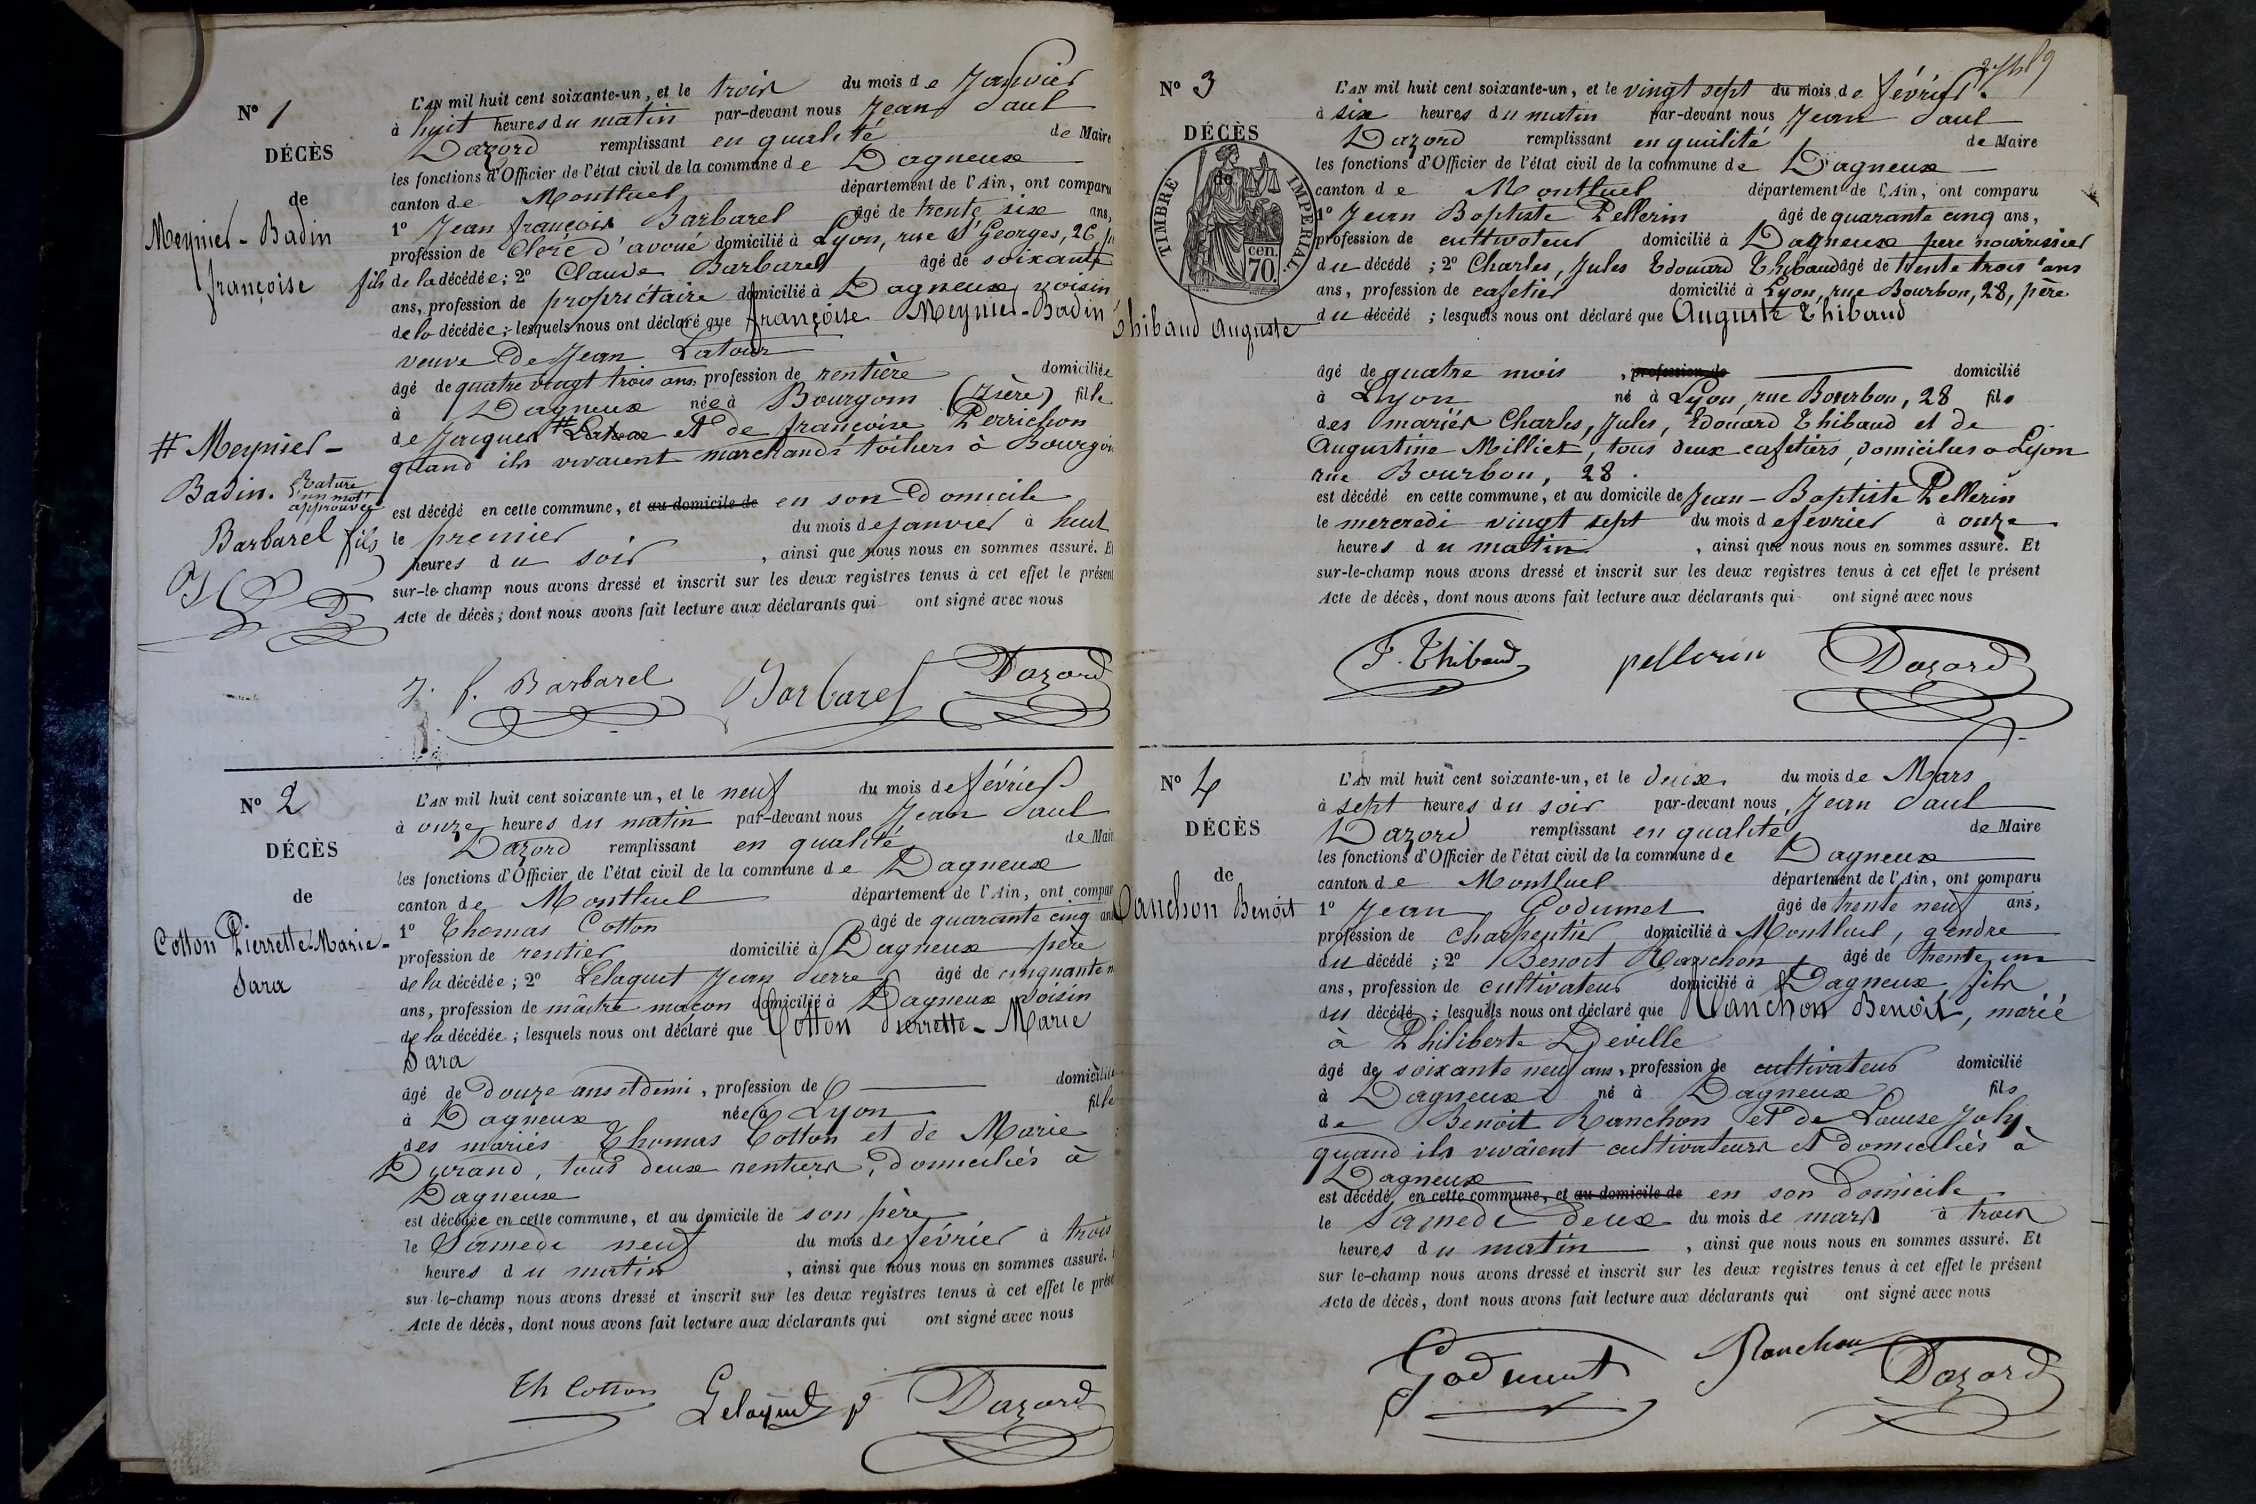 N° 1
DÉCÈS
de
Meynier - Badin
françoise
L'AN mil huit cent soixante-un, et le trois du mois de Janvier
à huit heures du matin par-devant nous Jean Paul
Dazord remplissant en qualité de Maire
les fonctions d'Officier de l'état civil de la commune de Dagneux
canton de Montluel département de l'Ain, ont comparu
1° Jean françois Barbarel âgé de trente six ans,
profession de Clerc d'avoué domicilié à Lyon, rue St Georges, 26
fils de la décédée ; 2° Claude Barbarel âgé de soixante
ans, profession de propriétaire domicilié à Dagneux, voisin
de la décédée ; lesquels nous ont déclaré que françoise Meynier-Badin
veuve de Jean Latour
âgé de quatre vingt trois ans, profession de rentière domiciliée
à Dagneux née à Bourgoin (Isère) fille
de Jacques # Latour et de françoise Perrichon
quand ils vivaient marchands toiliers à Bourgoin
# Meynier -
Badin. Rature
d'un mot
approuvée
Barbarel fils
est décédé en cette commune, et au domicile de en son Domicile
le premier du mois de janvier à huit
heures du soir , ainsi que nous nous en sommes assuré. Et
sur-le-champ nous avons dressé et inscrit sur les deux registres tenus à cet effet le présent
Acte de décès ; dont nous avons fait lecture aux déclarants qui ont signé avec nous
J. f. Barbarel Barbarel Dazord
N° 2
DÉCÈS
de
Cotton Pierrette-Marie-
Sara
L'AN mil huit cent soixante un, et le neuf du mois de février
à onze heures du matin par-devant nous Jean Paul
Dazord remplissant en qualité de Mair
les fonctions d'Officier de l'état civil de la commune de Dagneux
canton de Montluel département de l'Ain, ont compar
1° Thomas Cotton âgé de quarante cinq ans
profession de rentier domicilié à Dagneux père
de la décédée ; 2° Lelaquet Jean Pierre âgé de cinquante
ans, profession de maître maçon domicilié à Dagneux voisin
de la décédée ; lesquels nous ont déclaré que Cotton Pierrette - Marie
Sara
âgé de Douze ans et demi, profession de domiciliée
à Dagneux née à Lyon fille
des mariés Thomas Cotton et de Marie
Durand, tous deux rentiers, domiciliés à
Dagneux
est décédée en cette commune, et au domicile de son père
le Samedi neuf du mois de février à trois
heures du matin , ainsi que nous nous en sommes assuré.
sur-le-champ nous avons dressé et inscrit sur les deux registres tenus à cet effet le prése
Acte de décès, dont nous avons fait lecture aux déclarants qui ont signé avec nous
Th Cotton Lelaquet p Dazord
N° 3
DÉCÈS
de
TIMBRE IMPERIAL.
70 cen.
Thibaud Auguste
L'AN mil huit cent soixante-un, et le vingt sept du mois de février
à six heures du matin par-devant nous Jean Paul
Dazord remplissant en qualité de Maire
les fonctions d'Officier de l'état civil de la commune de Dagneux
canton de Montluel département de l'Ain, ont comparu
1° Jean Baptiste Pellerin âgé de quarante cinq ans,
profession de cultivateur domicilié à Dagneux père nourrissier
du décédé ; 2° Charles, Jules Edouard Thibaud âgé de trente trois ans
ans, profession de cafetier domicilié à Lyon, rue Bourbon, 28, père
du décédé ; lesquels nous ont déclaré que Auguste Thibaud
âgé de quatre mois , profession de domicilié
à Lyon né à Lyon, rue Bourbon, 28 fils
des mariés Charles, Jules, Edouard Thibaud et de
Augustine Milliet, tous deux cafetiers, domiciliés à Lyon
rue Bourbon, 28.
est décédé en cette commune, et au domicile de Jean - Baptiste Pellerin
le mercredi vingt sept du mois de février à onze
heures du matin , ainsi que nous nous en sommes assuré. Et
sur-le-champ nous avons dressé et inscrit sur les deux registres tenus à cet effet le présent
Acte de décès, dont nous avons fait lecture aux déclarants qui ont signé avec nous
Thibaud pellerin Dazord
N° 4
DÉCÈS
de
Ranchon Benoît
L'AN mil huit cent soixante-un, et le deux du mois de Mars
à sept heures du soir par-devant nous Jean Paul
Dazord remplissant en qualité de Maire
les fonctions d'Officier de l'état civil de la commune de Dagneux
canton de Montluel département de l'Ain, ont comparu
1° Jean Godumet âgé de trente neuf ans,
profession de charpentier domicilié à Montluel, gendre
du décédé ; 2° Benoit Ranchon âgé de trente un
ans, profession de cultivateur domicilié à Dagneux, fils
du décédé ; lesquels nous ont déclaré que Ranchon Benoît, marié
à Philiberte Deville
âgé de soixante neuf ans, profession de cultivateur domicilié
à Dagneux né à Dagneux fils
de Benoit Ranchon et de Louise Joly
quand ils vivaient cultivateurs et domiciliés à
Dagneux
est décédé en cette commune, et au domicile de en son Domicile
le Samedi deux du mois de mars à trois
heures du matin , ainsi que nous nous en sommes assuré. Et
sur le-champ nous avons dressé et inscrit sur les deux registres tenus à cet effet le présent
Acte de décès, dont nous avons fait lecture aux déclarants qui ont signé avec nous
Godumet Ranchon Dazord